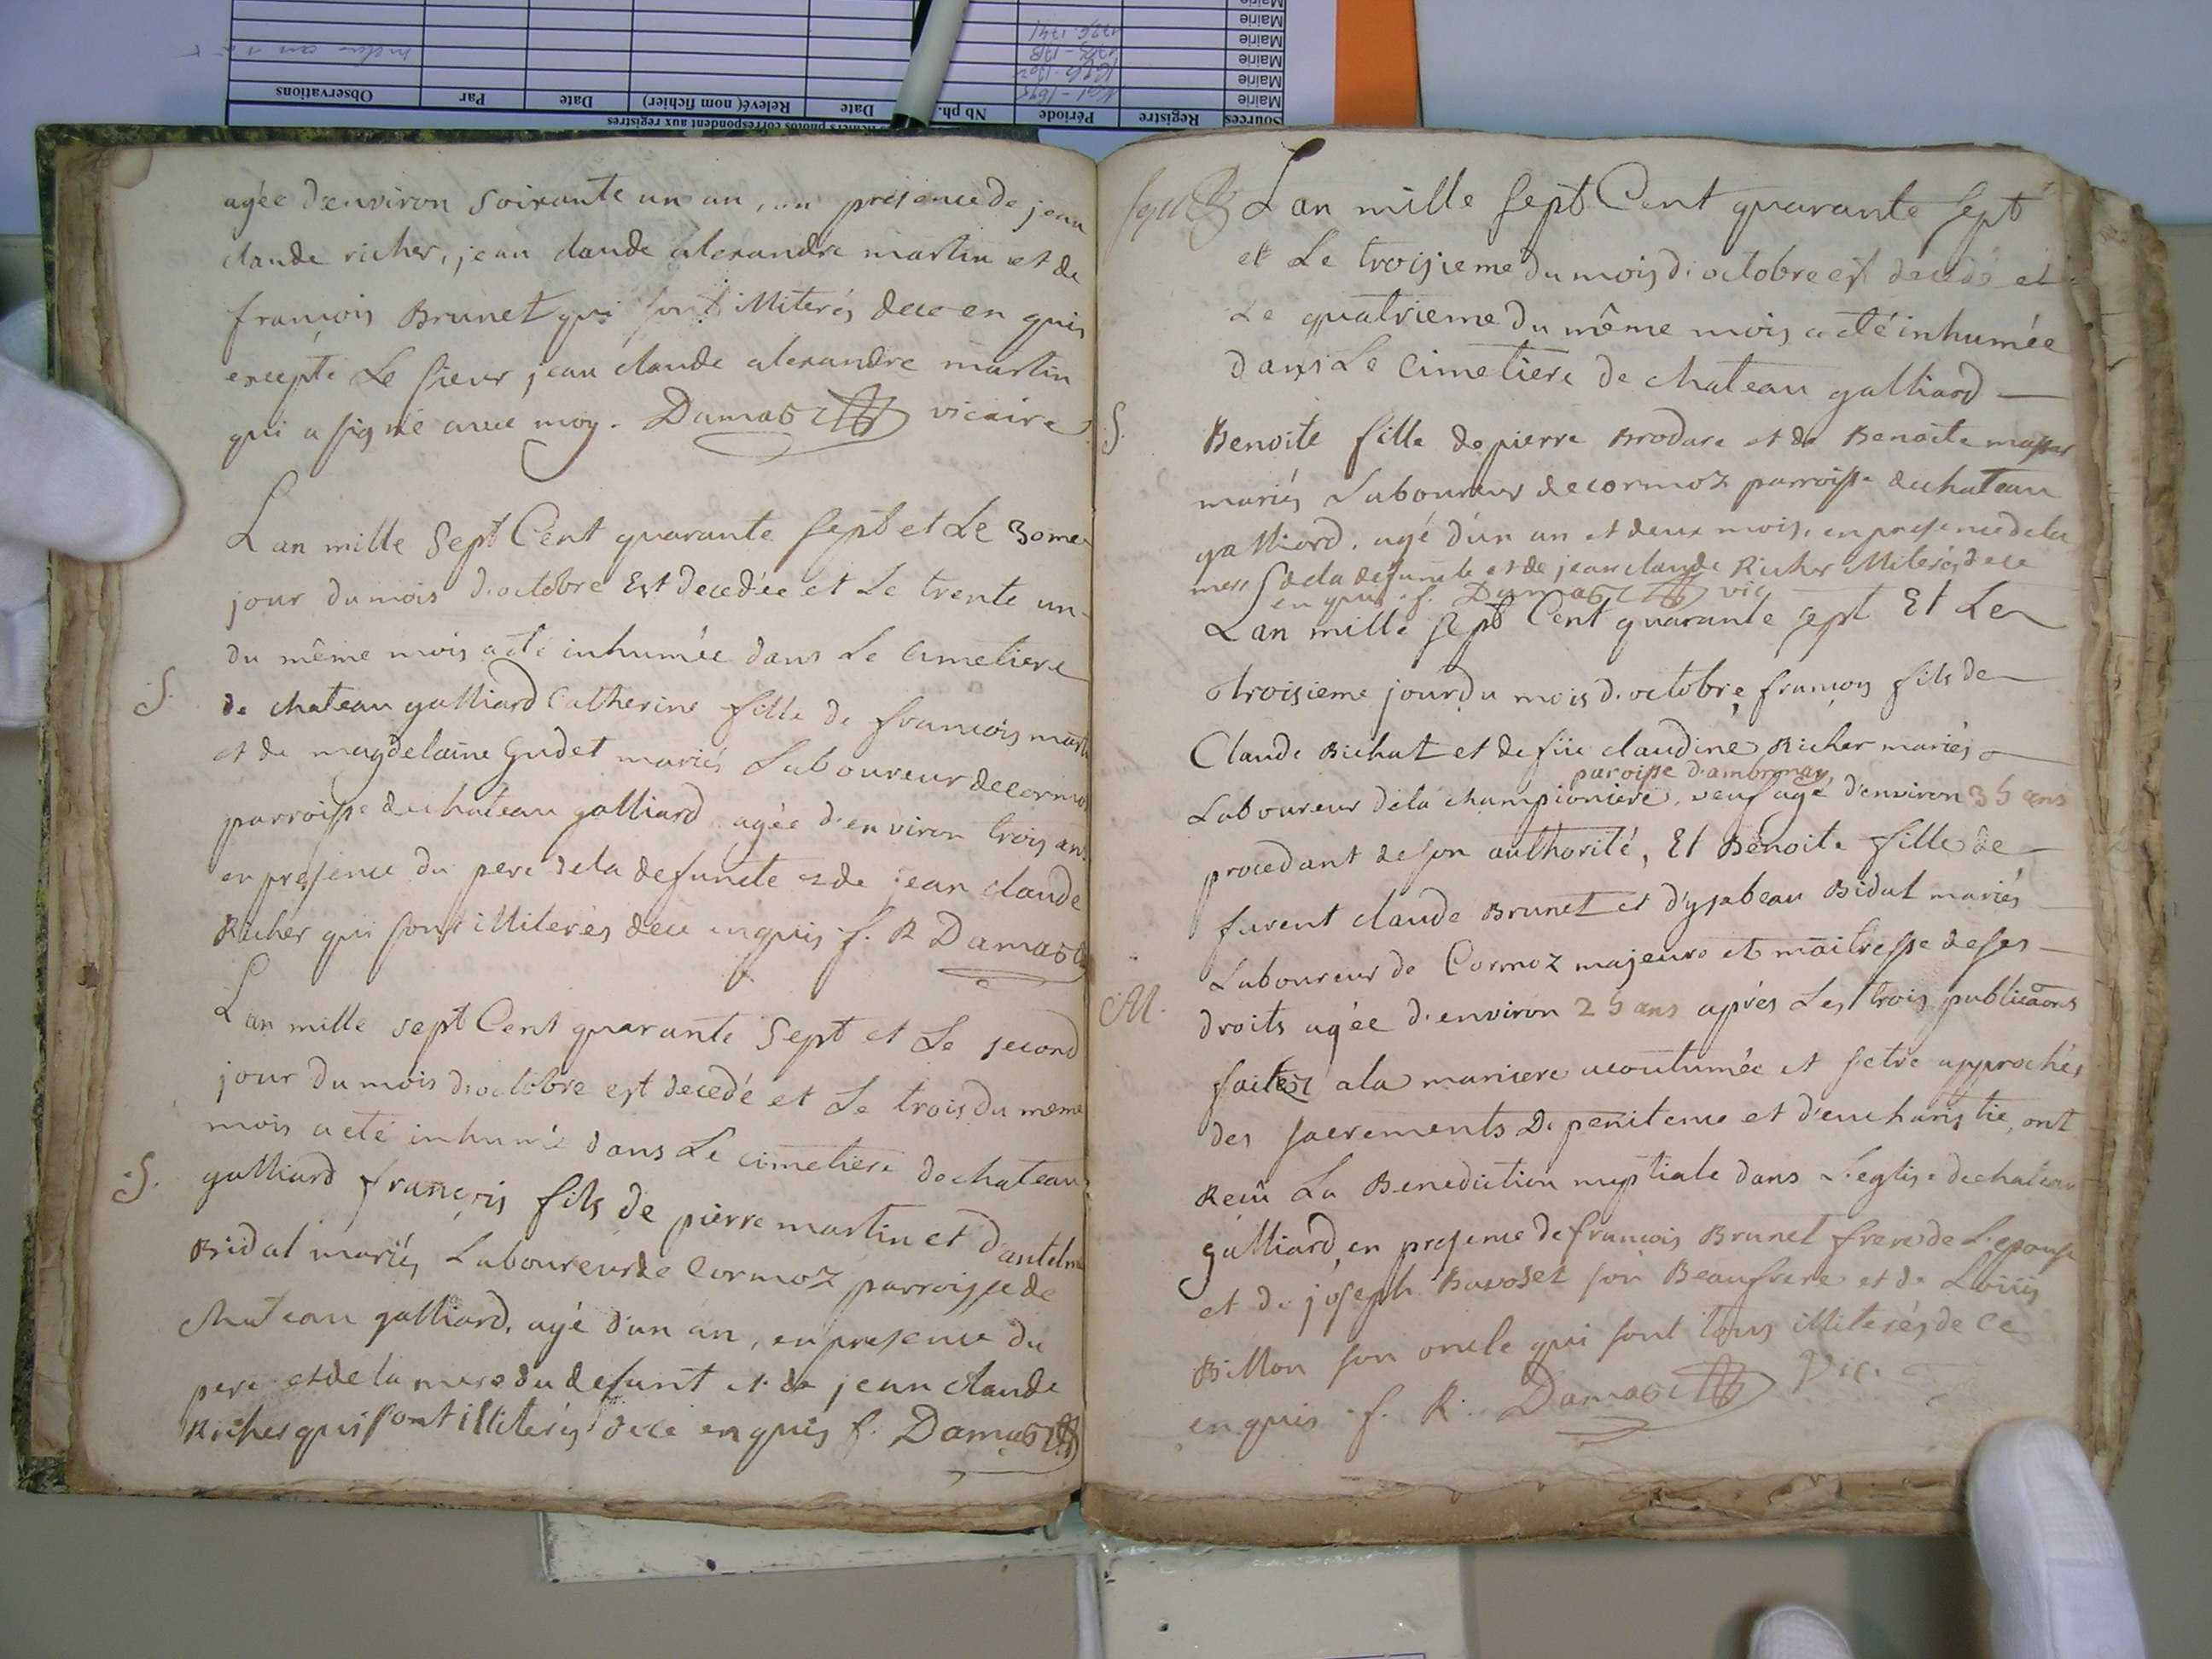 Sources Registre Période Nb ph. Date Relevé( nom fichier) Date Par Observations
Mairie
Mairie
Mairie
Mairie
Mairie
agée d'environ soixante un an, en presence de jean
claude richer, jean claude alexandre martin et de
francois Brunet qui sont illiterés de ce en quis
excepté Le sieur jean claude alexandre martin
qui a signé avec moy. Damas vicaire
Lan mille Sept Cent quarante sept et Le 30me
jour du mois d'octobre Est decedée et Le trente un
du même mois a eté inhumée dans Le Cimetiere
S. de chateau galliard Catherine fille de francois martin
et de magdelaine Gudet mariés Laboureur de cormoz
parroisse de chateau galliard agée d'environ trois ans
en presence du pere de la defuncte et de jean claude
Richer qui sont illiterés de ce enquis f. R Damas
Lan mille sept Cent quarante Sept et Le second
jour du mois d'octobre est decedé et Le trois du meme
mois a eté inhumé dans Le cimetiere de chateau
S. galliard françois fils de pierre martin et d'antelme
Bidat mariés Laboureur de Cormoz parroisse de
Chateau galliard, agé d'un an, en presence du
pere et de la mere du defunt et de jean claude
Richer qui sont illiterés de ce enquis f. Damas
Lan mille sept Cent quarante sept
et Le troisieme du mois d'octobre est decedé et
Le quatrieme du même mois a eté inhumée
dans Le Cimetiere de chateau galliard
S. Benoite fille de pierre Brodare et de Benoite
mariés Laboureur de cormoz parroisse de chateau
galliard, agé d'un an et deux mois, en presence de la
mere de la defuncte et de jean claude Richer illiterés de ce
en quis f. Damas vic
Lan mille sept Cent quarante sept Et Le
troisieme jour du mois d'octobre, françois fils de
Claude Bichat et de füe claudine Richer mariés
paroisse d'ambronay,
Laboureur de la championiere, veuf agé d'environ 35 ans
procedant de son authorité, Et Benoite fille de
furent claude Brunet et d'ysabeau Bidat mariés
Laboureur de Cormoz majeure et maitresse de ses
M. droits agée d'environ 25 ans aprés Les trois publicaons
faitez a la maniere acoutumée et s'etre approchés
des sacrements De penitence et d'eucharistie, ont
Reçû La Benediction nuptiale dans L'eglise de chateau
galliard, en presence de francois Brunet frere de L'epouse
et de joseph Bavoset son Beaufrere et de Loüis
Billon son oncle qui sont tous illiterés de ce
enquis f. R. Damas Vic.